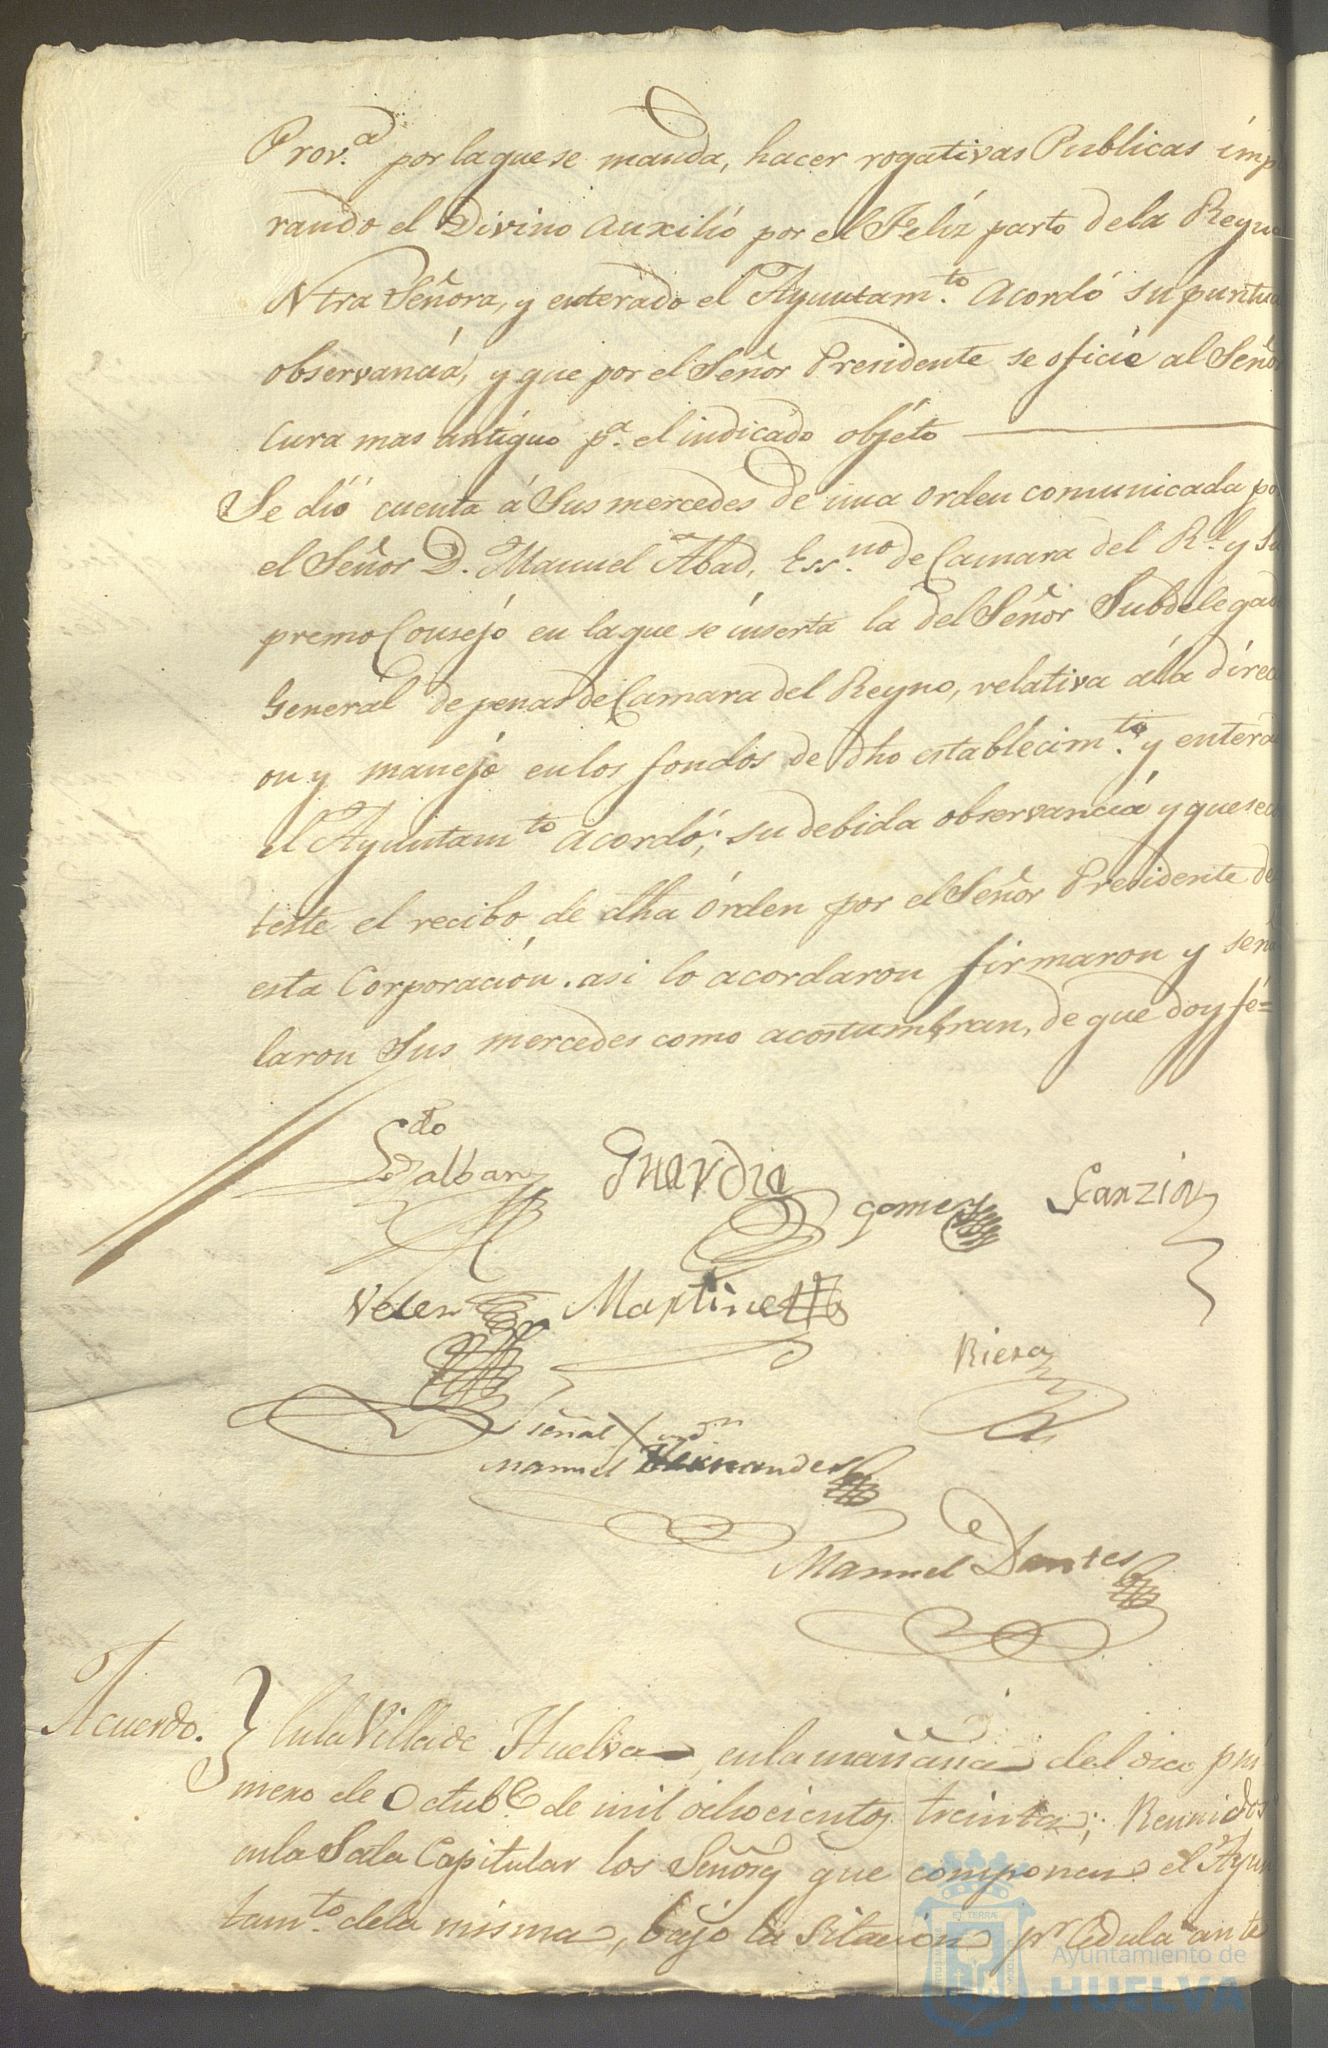 Prov.ª por la que se manda, hacer rogativas Publicas imp
rando el Divino auxilio por el Feliz parto dela Reyna
Ntra Señora, y enterado el Ayuntam.to Acordó su puntua
observancia, y que por el Señor Presidente se oficie al Señor
Cura mas antiguo p.ª el indicado objéto
Se dió cuenta á Sus mercedes de una orden comunicada po
el Señor D. Manuel Abad, Ess.no de Camara del R.l y Su
premo Consejo en la que se inserta la del Señor Subdelegad
General de penas de Camara del Reyno, relativa á la direc
on y manejo en los fondos de dho establecim.to y enterad
el Ayuntam.to acordó; su debida observancia y que se co
teste el recibo de dha órden por el Señor Presidente de
esta Corporacion. asi lo acordaron firmaron y señ
laron Sus mercedes como acostumbran, de que doy fé=
Guardia
Gomez
Velez Martinez
Riera
señal X
Manuel Hernandez
Manuel Dantes
Acuerdo.
En la Villa de Huelva, en la mañana del dia pri
mero de Octub.e de mil ochocientos treinta; Reunidos
en la Sala Capitular los Señores que componen el Ayun
tam.to dela misma, bajo la sitacion p.r Cedula ante
Ayuntamiento de
HUELVA